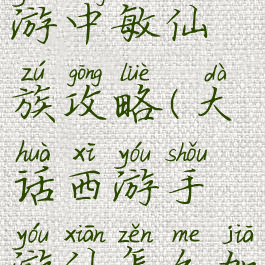 游中敏仙
zú gōng lüè dà
族攻略(大
huà xī yóu shǒu
话西游手
yóu xiān zěn me jiā
游仙怎么加